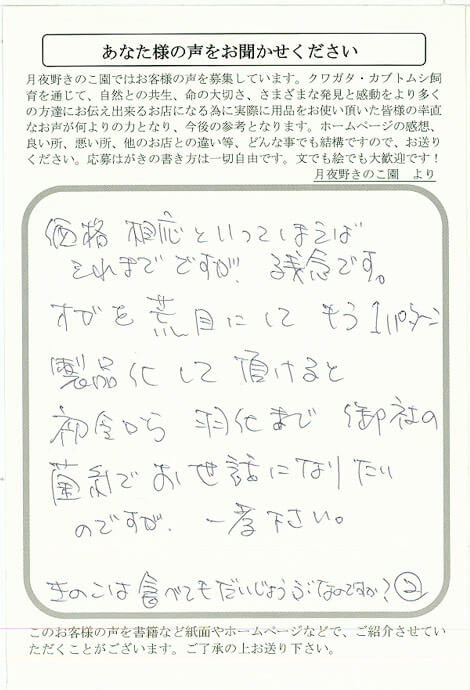 あなた様の声をお聞かせください
月夜野きのこ園ではお客様の声を募集しています。クワガタ・カブトムシ飼
育を通じて、自然との共生、命の大切さ、さまざまな発見と感動をより多く
の方達にお伝え出来るお店になる為に実際に用品をお使い頂いた皆様の率直
なお声が何よりの力となり、今後の参考となります。ホームページの感想、
良い所、悪い所、他のお店との違い等、どんな事でも結構ですので、お送り
ください。応募はがきの書き方は一切自由です。文でも絵でも大歓迎です！
月夜野きのこ園　より
価格相応といってしまえば
それまでですが、残念です。
オガを荒目にして もう1パターン
製品化して頂けると
初令から 羽化まで 御社の
菌糸でお世話になりたい
のですが、一考下さい。
きのこは食べてもだいじょうぶなのですか？②
このお客様の声を書籍など紙面やホームページなどで、ご紹介させてい
ただくことがございます。ご了承の上お送り下さい。